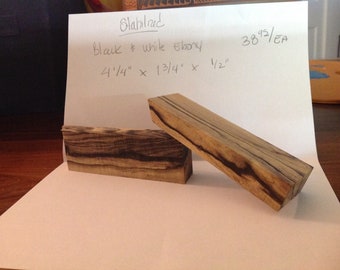 Stabilized
Black & White Ebony
38 95/EA
4 1/4" x 1 3/4" x 1/2"